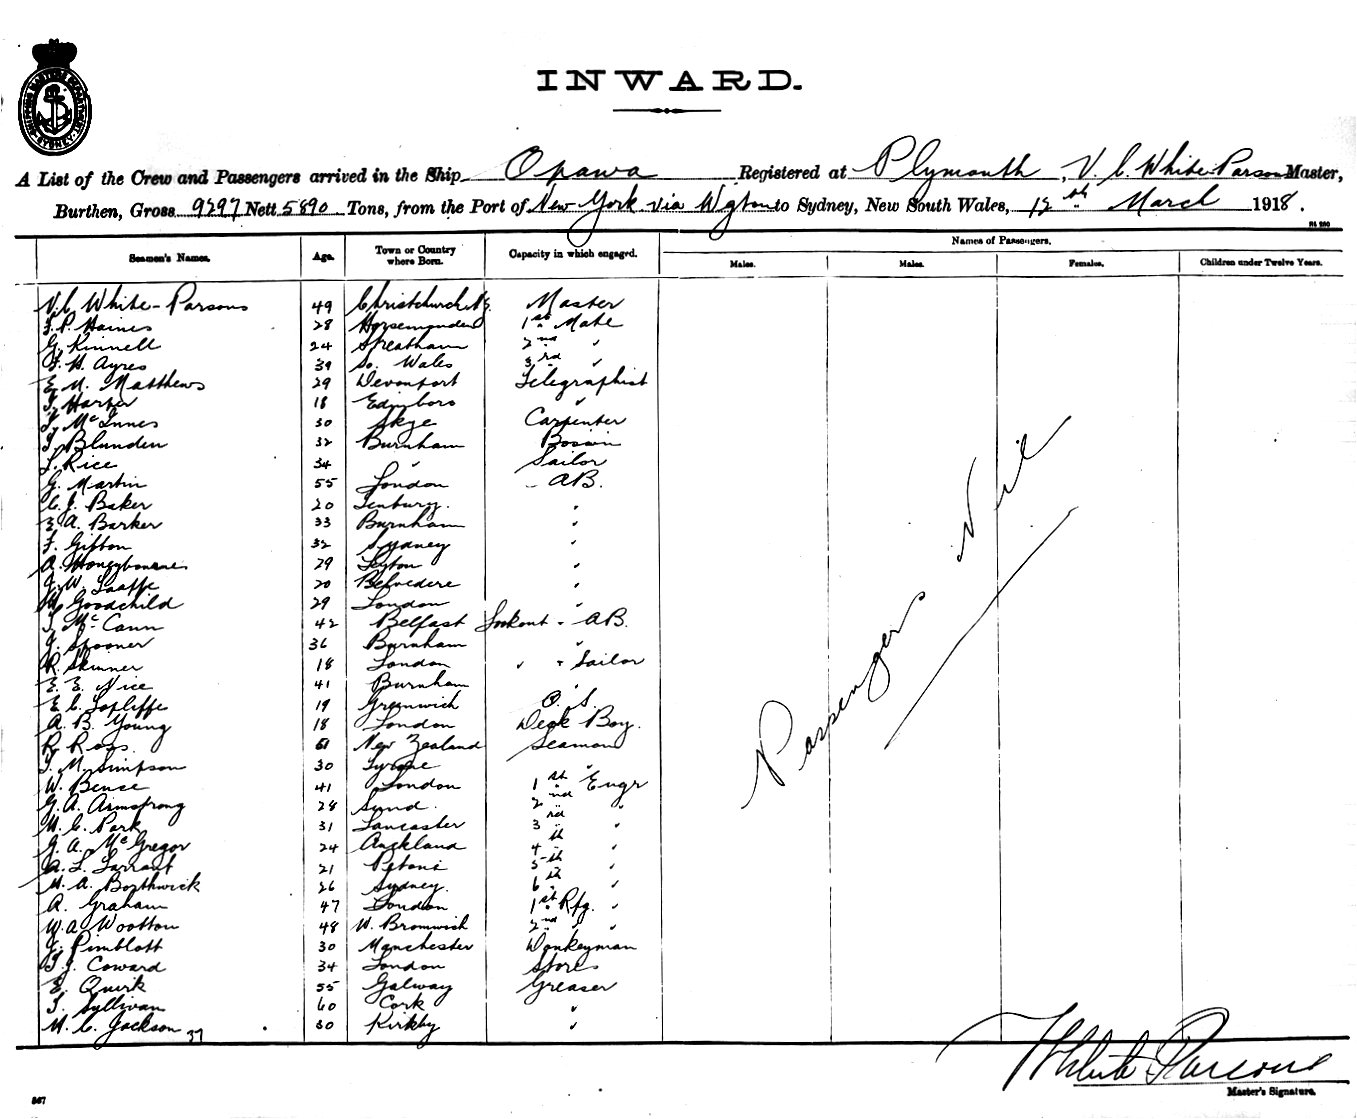 SHIPPING MASTERS DEPARTMENT SYDNEY
INWARD.
A List of the Crew and Passengers arrived in the Ship Opawa Registered at Plymouth, V. C. White-Parsons Master,
Burthen, Gross 9297 Nett 5890 Tons, from the Port of New York via Wgton to Sydney, New South Wales, 12th March 1918.
Seamen's Names. Age. Town or Country where Born. Capacity in which engaged. Names of Passengers.
Males. Males. Females. Children under Twelve Years.
V. C. White-Parsons 49 Christchurch N.Z. Master
F. P. Haines 28 Horsemonden 1st Mate
G. Kinnell 24 Streatham 2nd "
F. H. Ayres 39 So. Wales 3rd "
E. M. Matthews 29 Devonport Telegraphist
Harper 18 Edinboro "
McInnes 30 Skye Carpenter
Blunden 32 Burnham Bosun
Rice 34 " Sailor
G. Martin 55 London - AB.
C. J. Baker 20 Tenbury. "
E. A. Barker 33 Burnham "
F. Gifton 32 Sydney "
A. Honeybourne 29 Leyton "
20 Belvedere "
Goodchild 29 London "
McCann 42 Belfast Lookout - AB.
Spooner 36 Burnham "
R. Skinner 18 London " - Sailor
E. E. Nice 41 Burnham "
E. C. Topliffe 19 Greenwich O. S.
A. B. Young 18 London Deck Boy.
R. Ross. 61 New Zealand Seaman
M. Simpson 30 Tyrone "
W. Bence 41 London 1st Engr
G. A. Armstrong 28 Sund. 2nd "
M. C. Park 31 Lancaster 3rd "
G. A. McGregor 24 Auckland 4th "
A. L. Tarrant 21 Petone 5th "
M. A. Borthwick 26 Sydney. 6th "
A. Graham 47 London 1st Rfg. "
W. A. Wootton 48 W. Bromwich 2nd " "
Pimblott 30 Manchester Donkeyman
Coward 34 London Stores
E. Quirk 55 Galway Greaser
Sullivan 60 Cork "
M. C. Jackson 37 30 Kirkby "
Passengers Nil
White Parsons
Master's Signature.